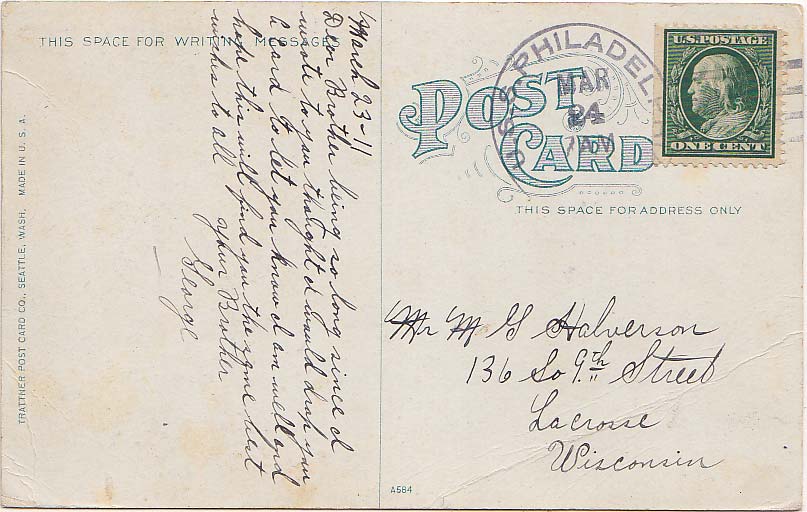 THIS SPACE FOR WRITING MESSAGES
March 23-11
Dear Brother being so long since I
wrote to you thought I would drop you
a card to let you know I am well and
hope this will find you the same best
wishes to all your Brother
George
TRATTNER POST CARD CO., SEATTLE, WASH. MADE IN U. S. A.
U.S.S. PHILADEL
MAR
24
7 AM
U.S. POSTAGE
ONE CENT
POST
CARD
THIS SPACE FOR ADDRESS ONLY
Mr M G Halverson
136 So 9th Street
Lacrosse
Wisconsin
A584